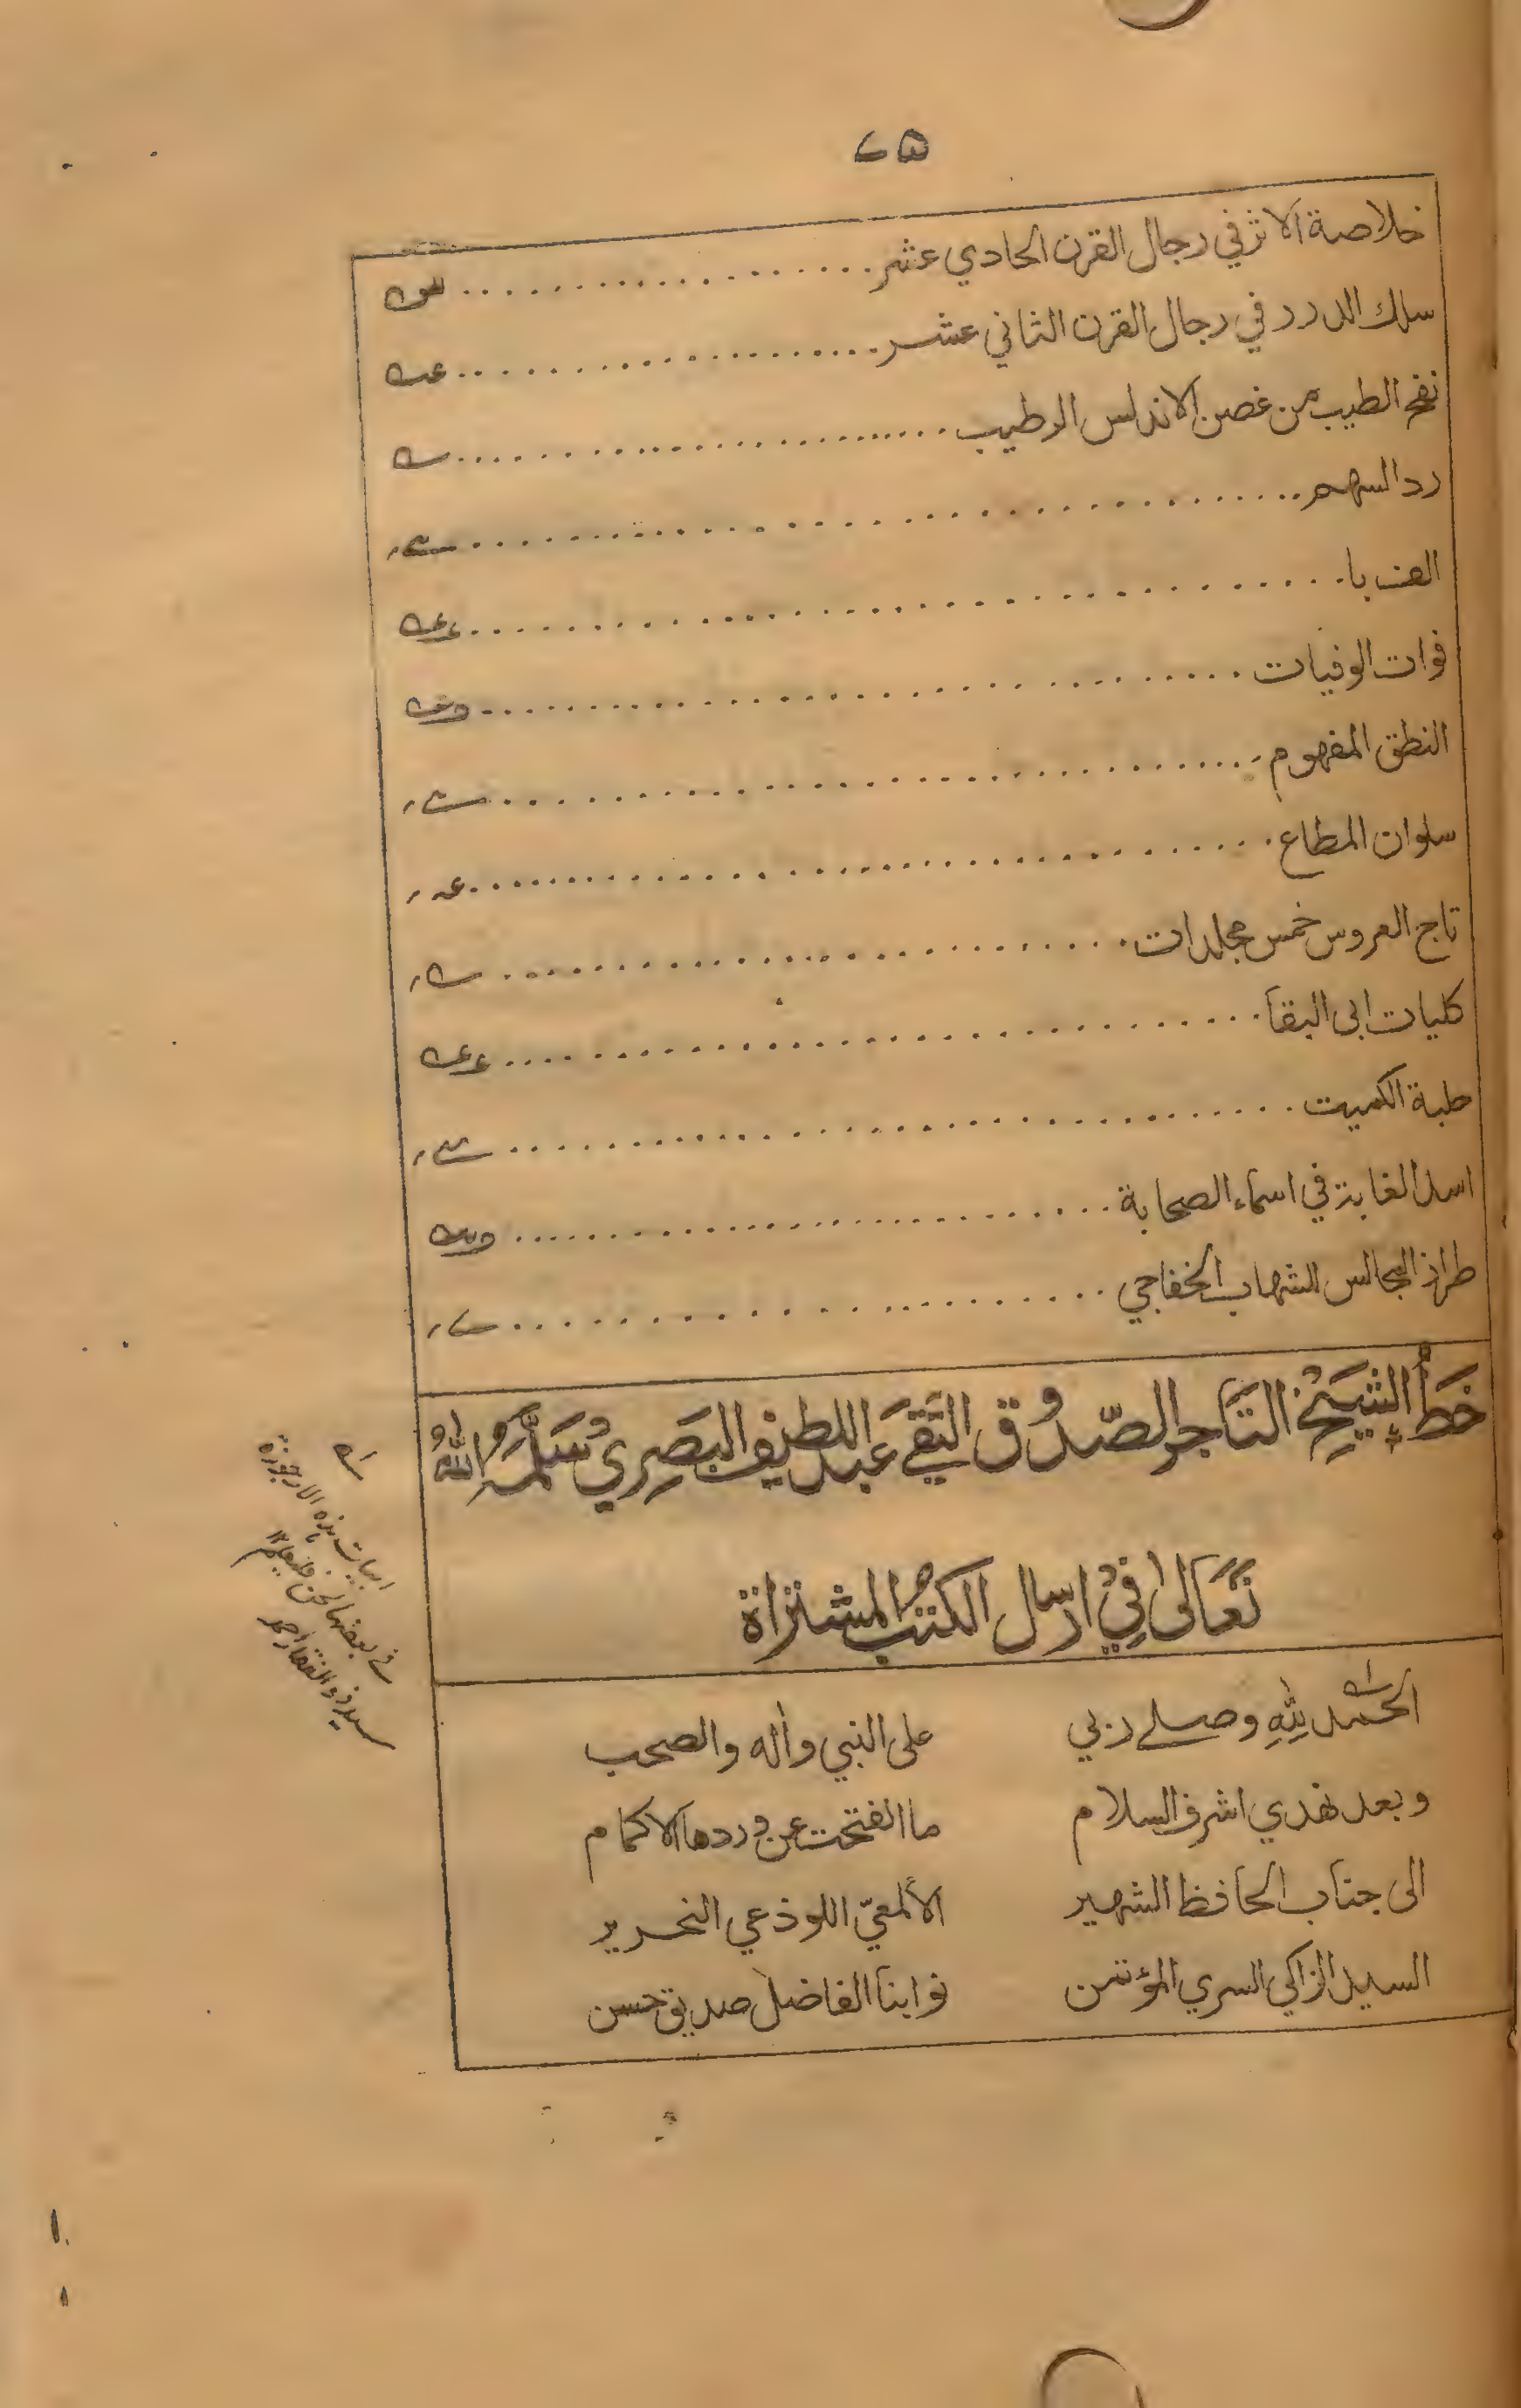 خلاصة الاثر في رجال القرن الحادي عشر
سلك الدرر في رجال القرن الثاني عشر
نفح الطيب من غصن الاندلس الرطيب
رد السهم
الف با
فوات الوفيات
النطق المفهوم
سلوان المطاع
تاج العروس خمس مجلدات
كليات ابى البقآ
حلبة الكميت
اسد الغابة في اسماء الصحابة
طراز المجالس للشهاب الخفاجي
خَطُّ الشَّيْخِ التَّاجِرِ الصَّدُوقِ التَّقِيِّ عَبدِ اللطيف البَصَرِيْ سَلَّمَهُ اللّٰهُ
تَعَالىٰ فِيْ ارسال الكتب المشتراة
ابيات هذه الارجوزة
في بعضها لحن فليعلم ١٢
سيد ذو الفقار احمد
الحمد لِلّٰهِ وصلے ربي على النبي واٰله والصحب
وبعد نهدي اشرف السلام ما انفتحت عن وردها الاكمام
الى جناب الحافظ الشهير الألمعيّ اللوذعي النحرير
السيد الزاكي السري المؤتمن نوابنا الفاضل صديق حسن